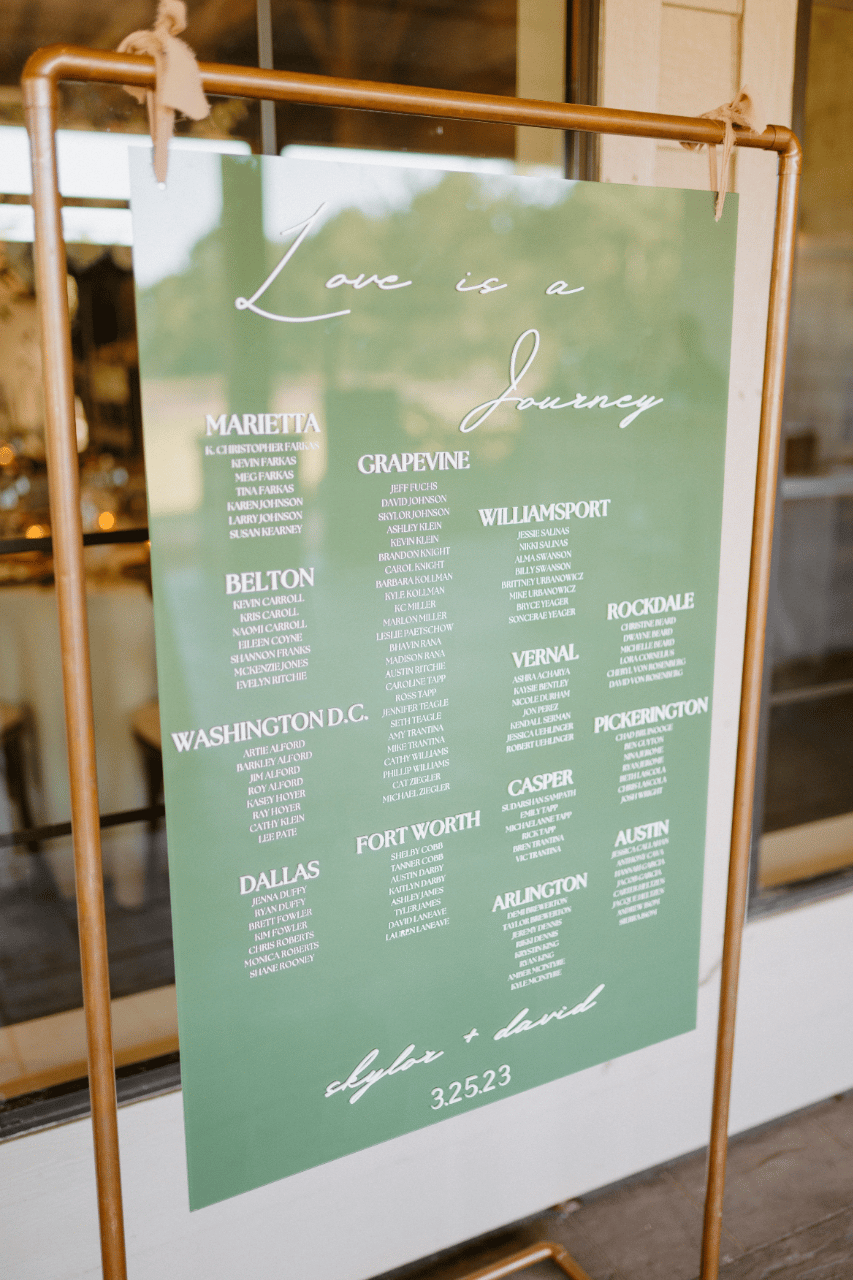 Love is a
Journey
MARIETTA
K. CHRISTOPHER FARKAS
KEVIN FARKAS
MEG FARKAS
TINA FARKAS
KAREN JOHNSON
LARRY JOHNSON
SUSAN KEARNEY
BELTON
KEVIN CARROLL
KRIS CAROLL
NAOMI CARROLL
EILEEN COYNE
SHANNON FRANKS
MCKENZIE JONES
EVELYN RITCHIE
WASHINGTON D.C.
ARTIE ALFORD
BARKLEY ALFORD
JIM ALFORD
ROY ALFORD
KASEY HOYER
RAY HOYER
CATHY KLEIN
LEE PATE
DALLAS
JENNA DUFFY
RYAN DUFFY
BRETT FOWLER
KIM FOWLER
CHRIS ROBERTS
MONICA ROBERTS
SHANE ROONEY
GRAPEVINE
JEFF FUCHS
DAVID JOHNSON
SKYLOR JOHNSON
ASHLEY KLEIN
KEVIN KLEIN
BRANDON KNIGHT
CAROL KNIGHT
BARBARA KOLLMAN
KYLE KOLLMAN
KC MILLER
MARLON MILLER
LESLIE PAETSCHOW
BHAVIN RANA
MADISON RANA
AUSTIN RITCHIE
CAROLINE TAPP
ROSS TAPP
JENNIFER TEAGLE
SETH TEAGLE
AMY TRANTINA
MIKE TRANTINA
CATHY WILLIAMS
PHILLIP WILLIAMS
CAT ZIEGLER
MICHAEL ZIEGLER
FORT WORTH
SHELBY COBB
TANNER COBB
AUSTIN DARBY
KAITLYN DARBY
ASHLEY JAMES
TYLER JAMES
DAVID LANEAVE
LAUREN LANEAVE
WILLIAMSPORT
JESSIE SALINAS
NIKKI SALINAS
ALMA SWANSON
BILLY SWANSON
BRITTNEY URBANOWICZ
MIKE URBANOWICZ
BRYCE YEAGER
SONCERAE YEAGER
VERNAL
ASHRA ACHARYA
KAYSIE BENTLEY
NICOLE DURHAM
JON PEREZ
KENDALL SERMAN
JESSICA UEHLINGER
ROBERT UEHLINGER
CASPER
SUDARSHAN SAMPATH
EMILY TAPP
MICHAELANNE TAPP
RICK TAPP
BREN TRANTINA
VIC TRANTINA
ARLINGTON
DEMI BREWERTON
TAYLOR BREWERTON
JEREMY DENNIS
RIKKI DENNIS
KRYSTIN KING
RYAN KING
AMBER MCINTYRE
KYLE MCINTYRE
ROCKDALE
CHRISTINE BEARD
DWAYNE BEARD
MICHELLE BEARD
LORA CORNELIUS
CHERYL VON ROSENBERG
DAVID VON ROSENBERG
PICKERINGTON
CHAD BRUNOOGE
BEN GUYTON
NINA JEROME
RYAN JEROME
BETH LASCOLA
CHRIS LASCOLA
JOSH WRIGHT
AUSTIN
JESSICA CALLAHAN
ANTHONY CAVA
HANNAH GARCIA
JACOB GARCIA
CARTER HELDEN
JACQUE HELDEN
ANDREW ISOM
SIERRA ISOM
skylor + david
3.25.23